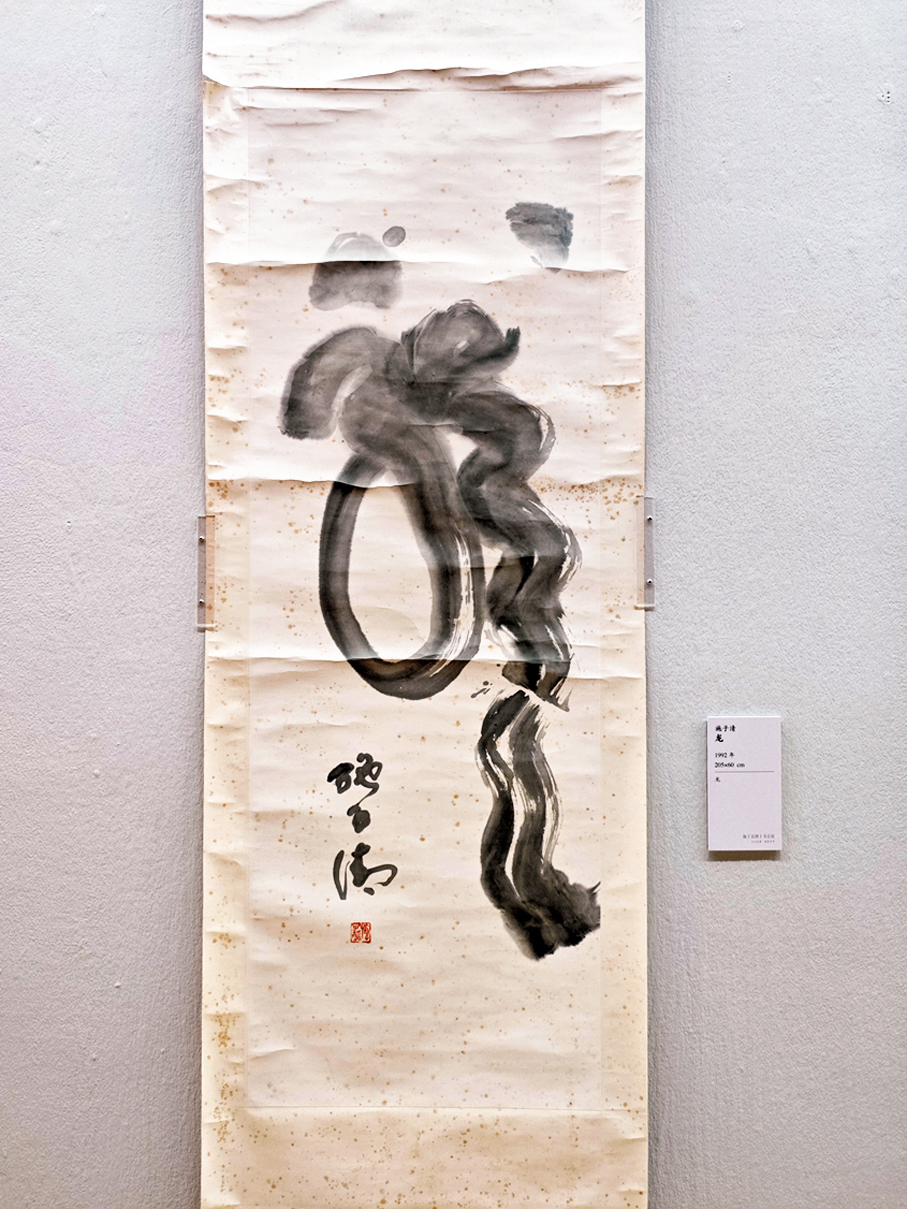 龙
施子清
施子清
龙
1992 年
205×60 cm
龙